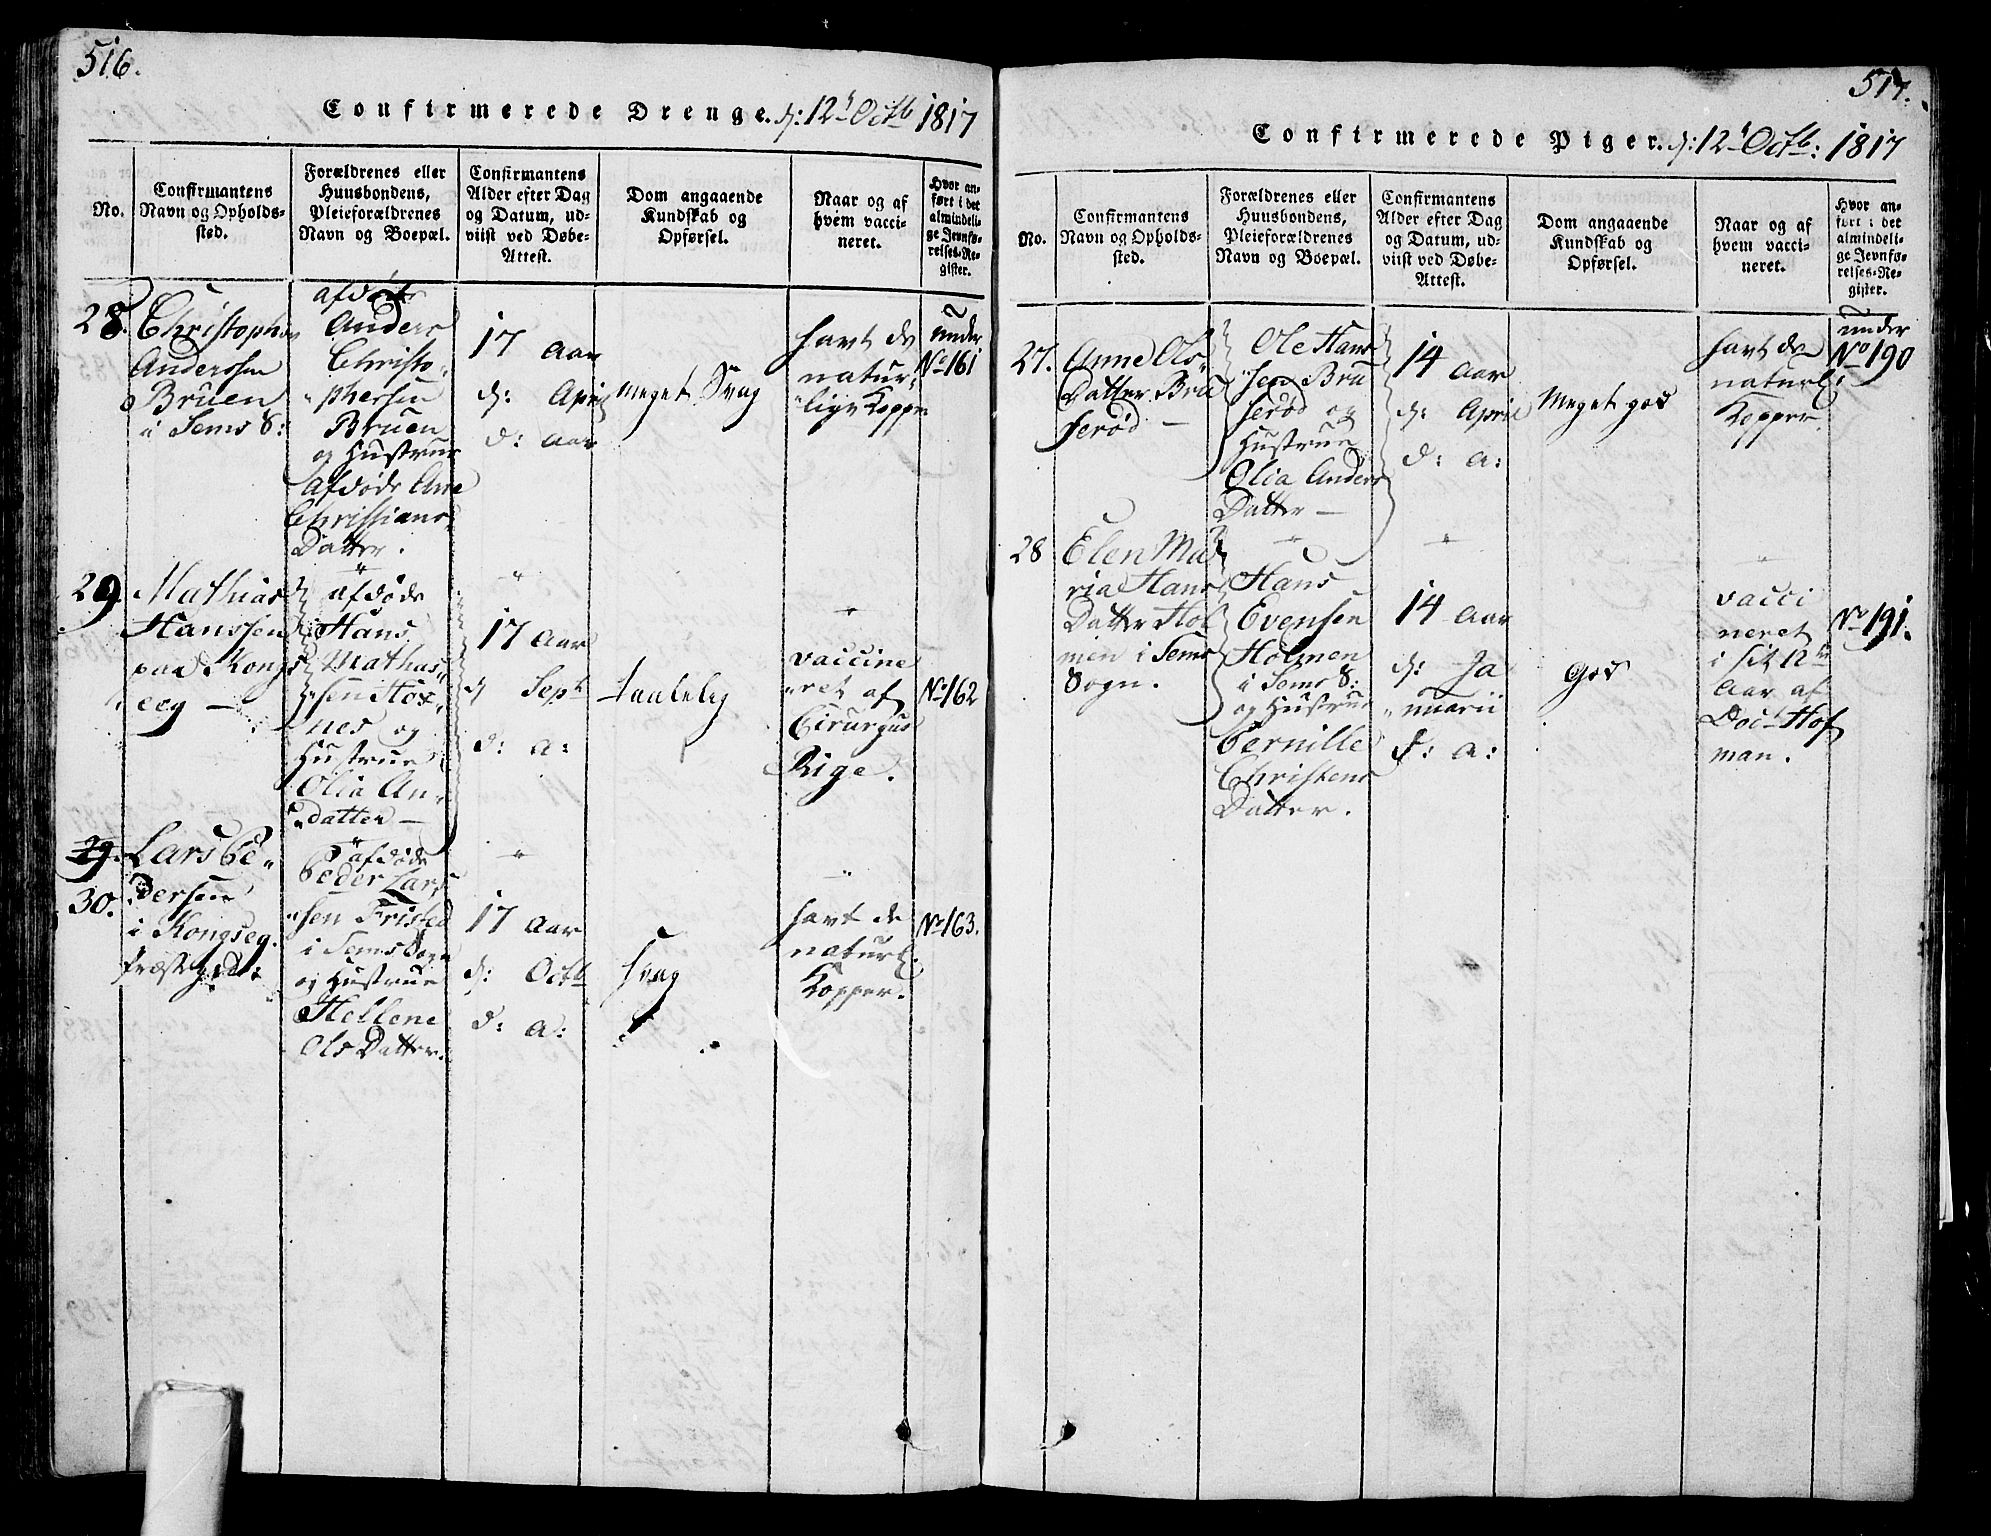 516.
Confirmerede Drenge. d: 12t Octb 1817
No.
Confirmantens
Navn og Opholds-
sted.
Forældrenes eller
Huusbondens,
Pleieforældrenes
Navn og Boepæl.
Confirmantens
Alder efter Dag
og Datum, ud-
viist ved Døbe-
Attest.
Dom angaaende
Kundskab og
Opførsel.
Naar og af
hvem vacci-
neret.
Hvor an-
ført i det
almindeli-
ge Jevnfø-
relses-Re-
gister.
28.
Christopher
Anderssen
Bruen
i Sems S:
afdøde
Anders
Christo-
phersen
Bruen
og Hustrue
afdøde Ane
Christians
Datter.
17 Aar
d: April
d: Aar
meget Svag
havt de
natur-
lige Kopper
under
No 161
29.
Mathias
Hanssen
paa Kongs
eeg —
afdøde
Hans
Mathas-
sen Høx-
nes og
Hustrue
Olia An-
datter —
17 Aar
d Septb
d: a:
taalelig
vaccine
ret af
Cirurgus
Rige.
No 162
29.
30.
Lars Pe-
dersen
i Kongseg.
Præstgrd:
afdøde
Peder Lars
sen Fristed
i Sems Sogn
og Hustrue
Hellene
Ols Datter.
17 Aar
d: Octb
d: a:
Svag
havt de
naturl.
Kopper.
No 163.
517.
Confirmerede Piger. d: 12t Octb: 1817
No.
Confirmantens
Navn og Opholds-
sted.
Forældrenes eller
Huusbondens,
Pleieforældrenes
Navn og Boepæl.
Confirmantens
Alder efter Dag
og Datum, ud-
viist ved Døbe-
Attest.
Dom angaaende
Kundskab og
Opførsel.
Naar og af
hvem vacci-
neret.
Hvor an-
ført i det
almindeli-
ge Jevnfø-
relses-Re-
gister.
27.
Anne Ols-
Datter Bru
serød —
Ole Hans
sen Bru
serød og
Hustrue
Olia Anders
Datter —
14 Aar
d: April
d: a:
Meget god
havt de
naturl:
Kopper.
under
No 190
28
Elen Ma
ria Hans
Datter Hol
men i Sems
Sogn.
Hans
Evensen
Holmen
i Sems S:
og Hustrue
Pernille
Christens
Datter.
14 Aar
d: Ja
nuarii
d: a:
God
vacci
neret
i sit 12te
Aar af
Doct Hof
man.
No 191.